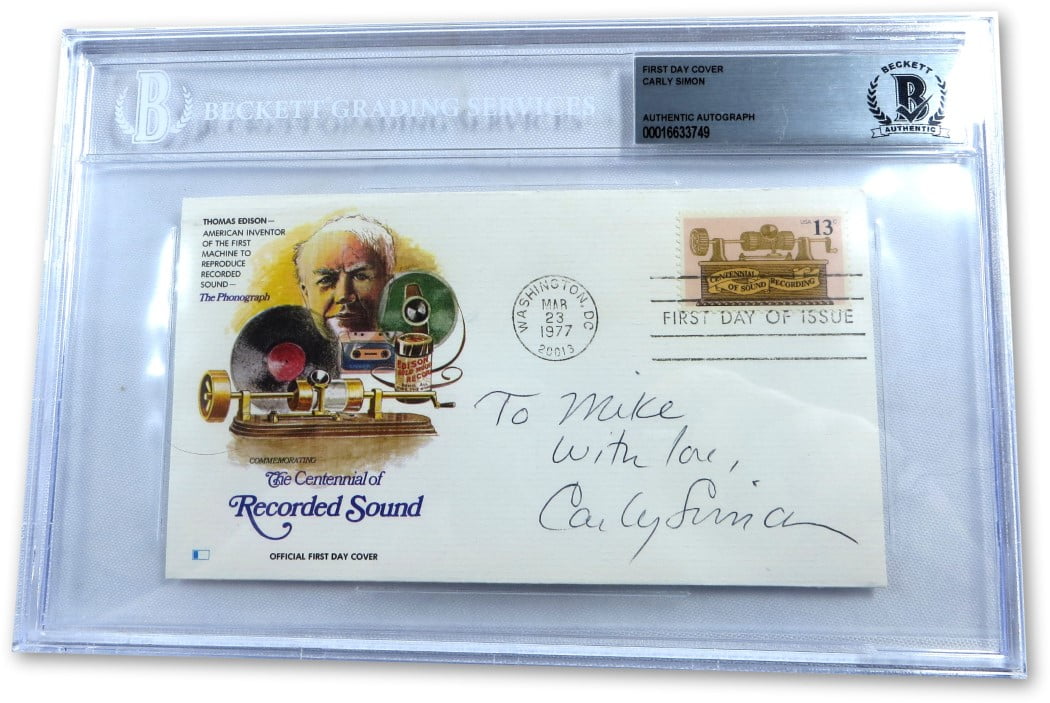 BECKETT GRADING SERVICES
FIRST DAY COVER
CARLY SIMON
AUTHENTIC AUTOGRAPH
00016633749
BECKETT
B
AUTHENTIC
THOMAS EDISON—
AMERICAN INVENTOR
OF THE FIRST
MACHINE TO
REPRODUCE
RECORDED
SOUND—
The Phonograph
EDISON
GOLD MOULDED
RECORDS
COMMEMORATING
The Centennial of
Recorded Sound
OFFICIAL FIRST DAY COVER
WASHINGTON, DC
MAR
23
1977
20013
USA 13c
CENTENNIAL
OF SOUND RECORDING
FIRST DAY OF ISSUE
To Mike
With love,
Carly Simon